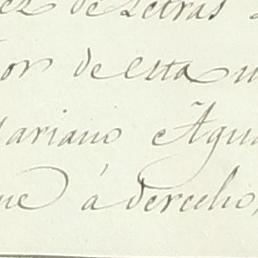 ez de Letras
or de esta
ariano Agu
ue á derecho,